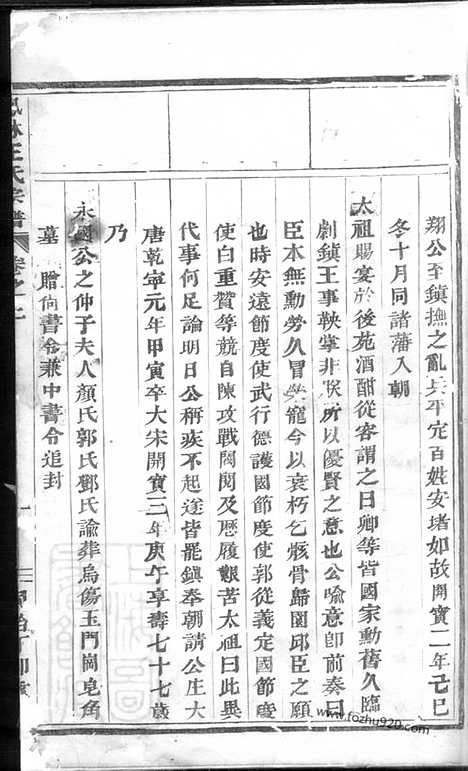 翔公至鎮撫之亂兵平定百姓安堵如故開寶二年己巳
冬十月同諸藩入朝
太祖賜宴於後苑酒酣從容謂之曰卿等皆國家勳舊久臨
劇鎮王事鞅掌非朕所以優賢之意也公喻意即前奏曰
臣本無勳勞久冒榮寵今以衰朽乞骸骨歸園邱臣之願
也時安遠節度使武行德護國節度使郭從義定國節度
使白重贊等競自陳攻戰閥閱及歷履艱苦太祖曰此異
代事何足論明日公稱疾不起遂皆罷鎮奉朝請公生大
唐乾寧元年甲寅卒大宋開寶三年庚午享壽七十七歲
乃
永國公之仲子夫人顏氏郭氏鄧氏諭葬烏傷玉門崗皂角
墓 贈尚書令兼中書令追封
林王氏宗譜 卷之
www.fozhu920.com